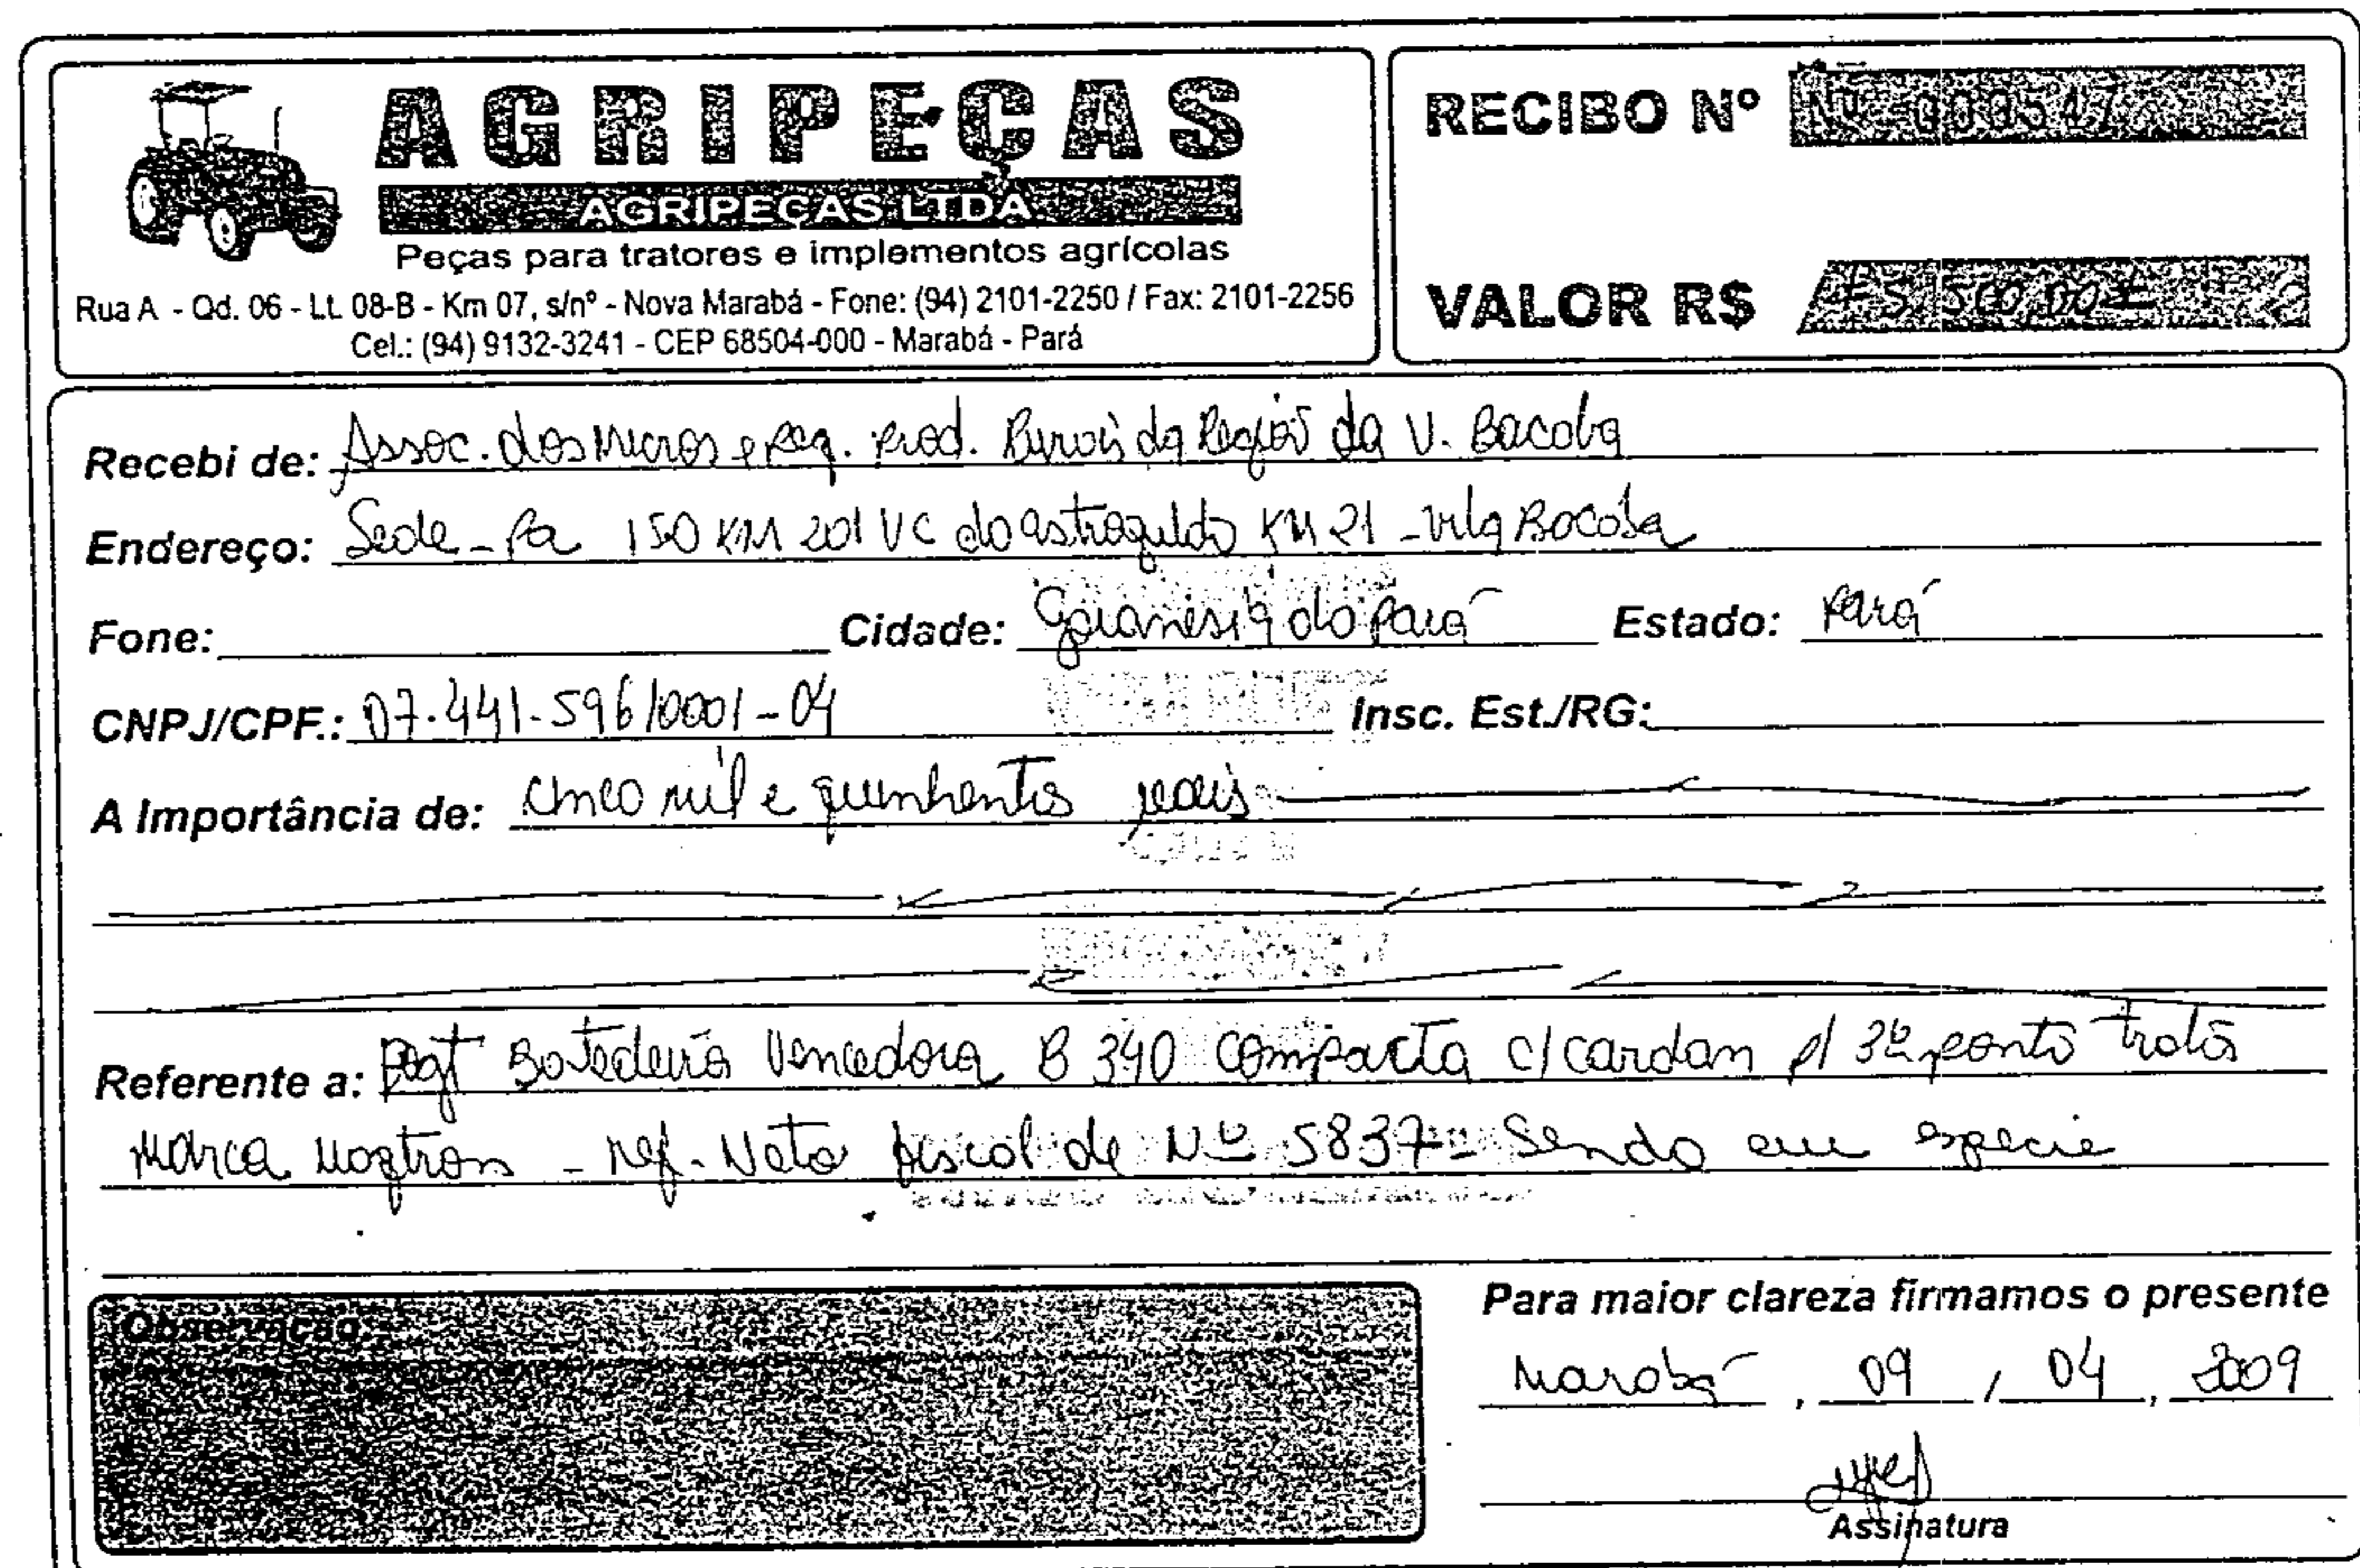 AGRIPEÇAS
AGRIPEÇAS LTDA
Peças para tratores e implementos agrícolas
Rua A - Qd. 06 - Lt. 08-B - Km 07, s/nº - Nova Marabá - Fone: (94) 2101-2250 / Fax: 2101-2256
Cel.: (94) 9132-3241 - CEP 68504-000 - Marabá - Pará
RECIBO Nº Nº 000547
VALOR R$ 5.500,00
Recebi de: Assoc. dos Micros e Peq. Prod. Rurais da Região da V. Bacaba
Endereço: Sede - Pa 150 KM 201 VC do KM 21 - Vila Bacaba
Fone: Cidade: Goianésia do Pará Estado: Pará
CNPJ/CPF.: 07.441.596/0001-04 Insc. Est./RG:
A Importância de: cinco mil e quinhentos reais
Referente a: Pagt Batedeira Vencedora B 340 compacta c/ cardam p/ 3º ponto trator
Marca - ref. Nota fiscal de Nº 5837 - Sendo em espécie
Observação:
Para maior clareza firmamos o presente
Marabá, 09 / 04, 2009
Assinatura